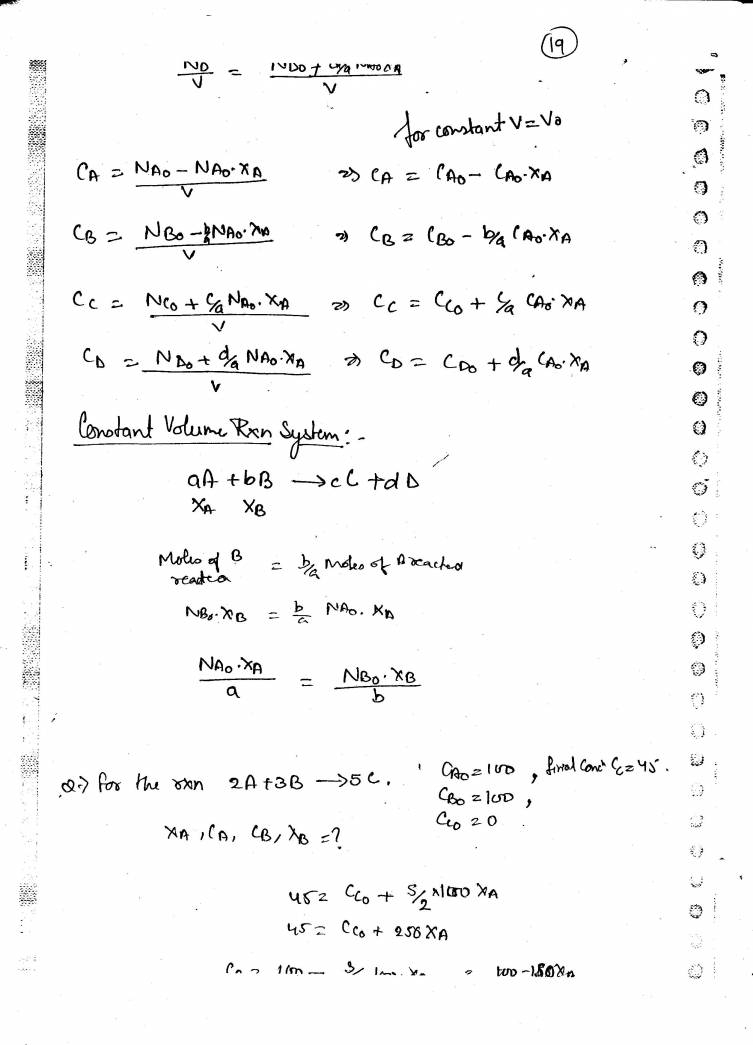 19
ND/V = NDo + /V
for constant V=Vo
CA = NAo – NAo·XA/V ⇒ CA = CAo – CAo·XA
CB = NBo – b/a NAo·XA/V ⇒ CB = CBo – b/a CAo·XA
Cc = Nco + c/a NAo·XA/V ⇒ Cc = Cco + c/a CAo·XA
CD = NDo + d/a NAo·XA/V ⇒ CD = CDo + d/a CAo·XA
Constant Volume Rxn System:-
aA + bB → cC + dD
XA XB
Moles of B reacted = b/a moles of A reacted
NBo·XB = b/a NAo·XA
NAo·XA/a = NBo·XB/b
Q→ for the rxn 2A+3B → 5C, CAo=100, final Conc Cc=45.
CBo=100,
Cco=0
XA, CA, CB, XB =?
45= Cco + 5/2 ×100 XA
45= Cco + 250 XA
= 100 -150XA